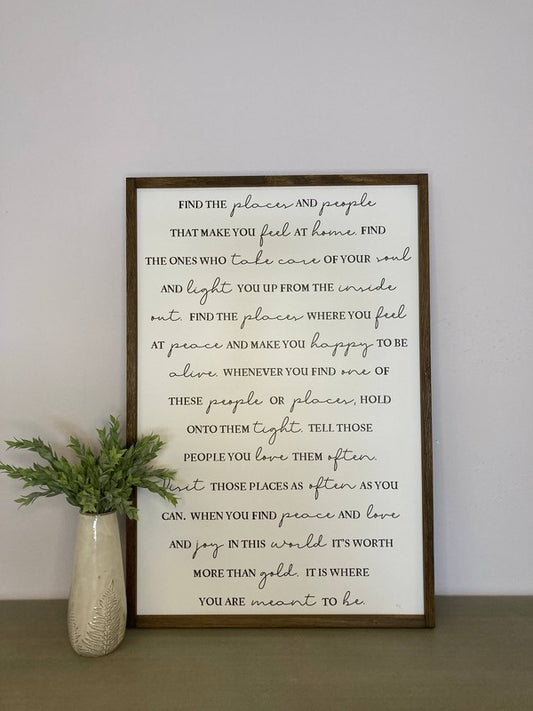 FIND THE places AND people
THAT MAKE YOU feel AT home. FIND
THE ONES WHO take care OF YOUR soul
AND light YOU UP FROM THE inside
out. FIND THE places WHERE YOU feel
AT peace AND MAKE YOU happy TO BE
alive. WHENEVER YOU FIND one OF
THESE people OR places, HOLD
ONTO THEM tight. TELL THOSE
PEOPLE YOU love THEM often.
Visit THOSE PLACES AS often AS YOU
CAN. WHEN YOU FIND peace AND love
AND joy IN THIS world IT'S WORTH
MORE THAN gold. IT IS WHERE
YOU ARE meant TO be.